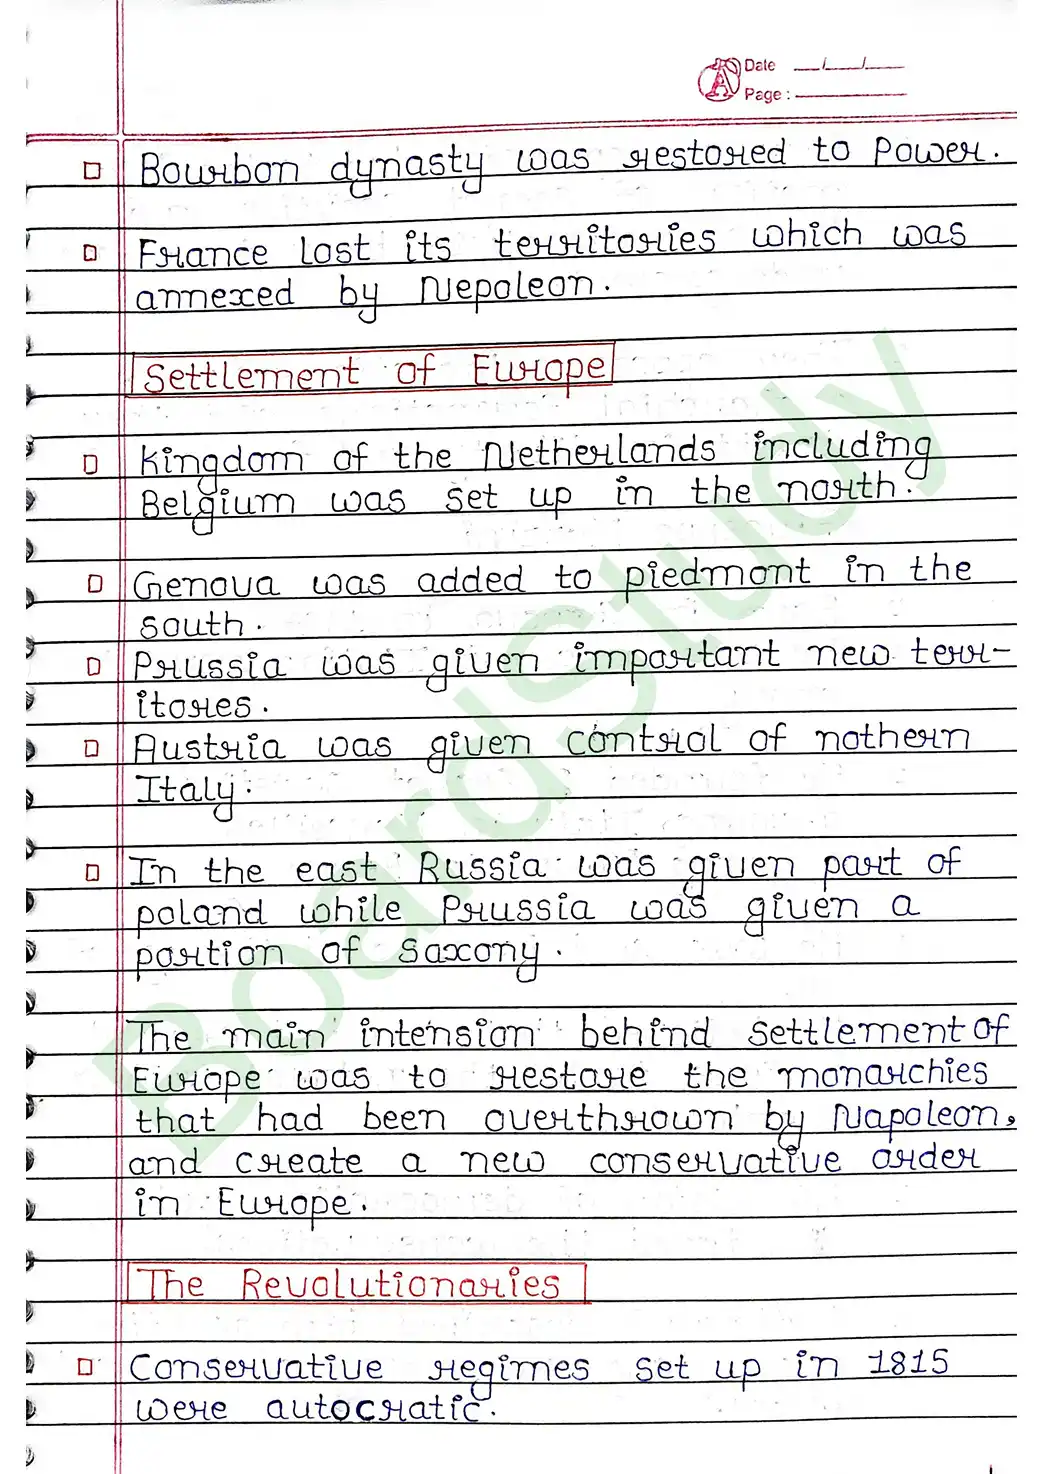 Date __/__/__
Page : ______
Bourbon dynasty was restored to Power.
France lost its territories which was
annexed by Nepoleon.
Settlement of Europe
Kingdom of the Netherlands including
Belgium was set up in the north.
Genova was added to piedmont in the
south.
Prussia was given important new terr-
itores.
Austria was given control of nothern
Italy.
In the east Russia was given part of
poland while Prussia was given a
portion of Saxony.
The main intension behind settlement of
Europe was to restore the monarchies
that had been overthrown by Napoleon,
and create a new conservative order
in Europe.
The Revolutionaries
Conservative regimes set up in 1815
were autocratic.
BoardStudy